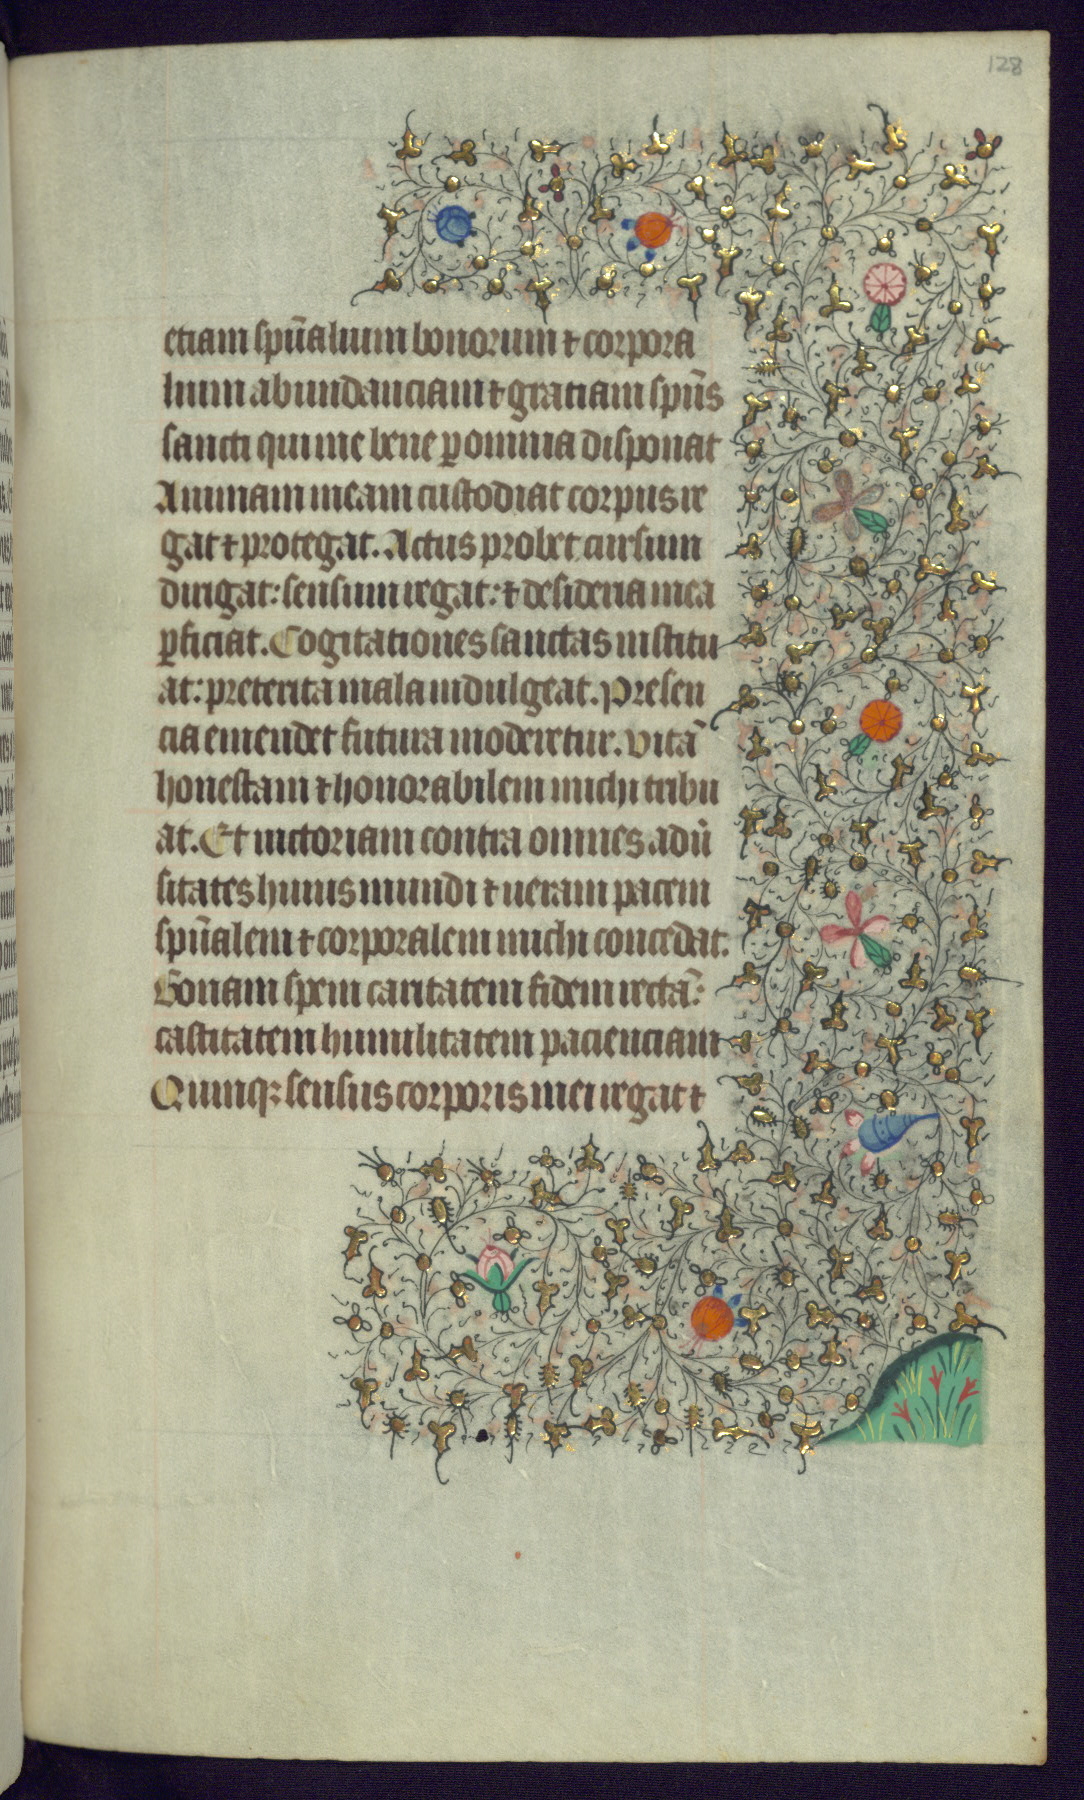 128
etiam spūalium bonorum ⁊ corpora
lium abundanciam ⁊ gratiam spūs
sancti qui me bene ꝑ omnia disponat
Animam meam custodiat corpus re
gat ⁊ protegat. Actus probet cursum
dirigat: sensum regat: ⁊ desideria mea
ꝑficiat. Cogitationes sanctas institu
at: preterita mala indulgeat. Presen
cia emendet futura moderetur. vitā
honestam ⁊ honorabilem michi tribu
at. Et uictoriam contra omnes adū
sitates huius mundi ⁊ ueram pacem
spūalem ⁊ corporalem michi concedat.
Bonam spem caritatem fidem rectā:
castitatem humilitatem pacienciam
Quinqꝫ sensus corporis mei regat ⁊